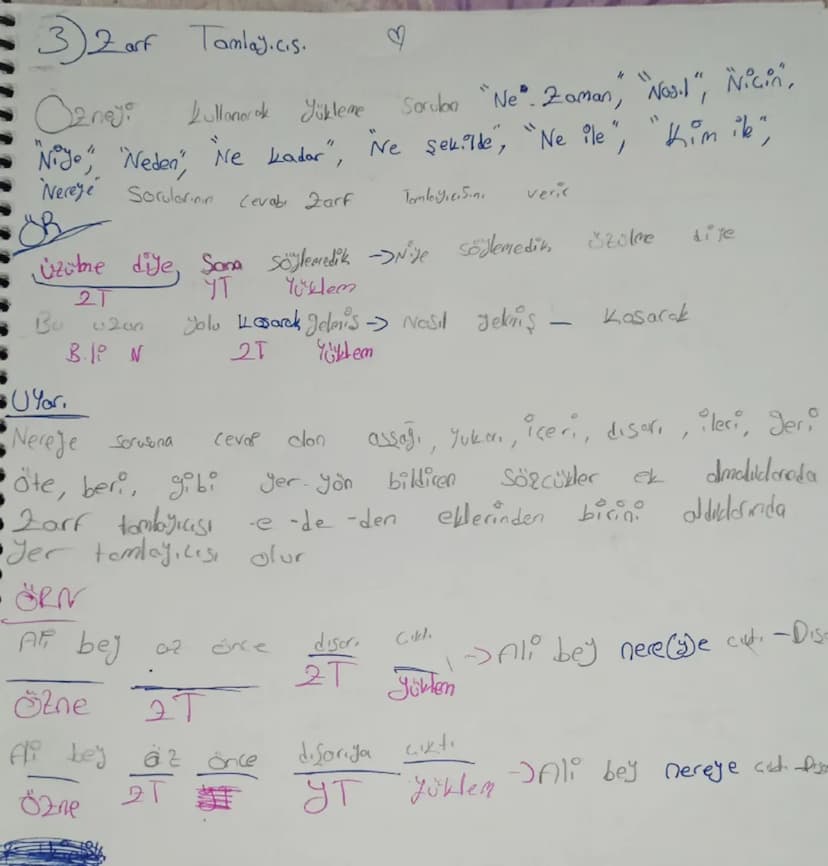 3) Zarf Tamlayıcıs.
Özneyi kullanarak yükleme sorulan "Ne Zaman", "Nasıl", "Niçin",
"Niye", "Neden", "Ne kadar", "Ne şekilde", "Ne ile", "Kim ile",
"Nereye" Sorularının cevabı Zarf Tamlayıcısını verir
ÖR
üzülme diye, Sana söylemedik -> Niye söylemedik üzülme diye
ZT YT Yüklem
Bu uzun yolu koşarak gelmiş -> Nasıl gelmiş - Koşarak
B.li N ZT Yüklem
Uyarı
Nereye sorusuna cevap olan aşşağı, yukarı, içeri, dışarı, ileri, geri
öte, beri, gibi yer-yön bildiren sözcükler ek almadıklarında
Zarf tamlayıcısı -e -de -den eklerinden birini aldıklarında
Yer tamlayıcısı olur
ÖRN
Ali bey az önce dışarı çıktı. -> Ali bey nere(y)e çıktı. - Dışa
Özne ZT ZT Yüklem
Ali bey az önce dışarıya çıktı. -> Ali bey nereye çıktı -
Özne ZT YT Yüklem